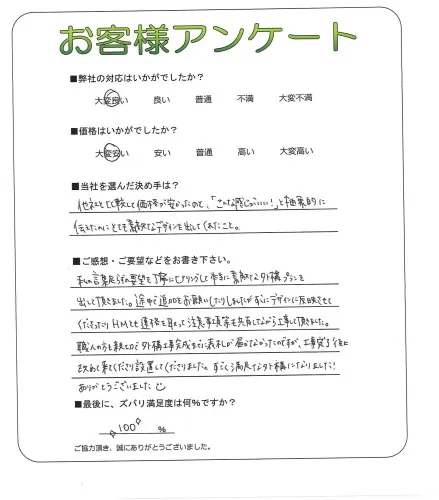 お客様アンケート
■弊社の対応はいかがでしたか？
大変良い 良い 普通 不満 大変不満
■価格はいかがでしたか？
大変安い 安い 普通 高い 大変高い
■当社を選んだ決め手は？
他社と比較して価格が安かったのと、「こんな感じがいい！」と抽象的に
伝えたのにとても素敵なデザインを出してくれたこと。
■ご感想・ご要望などをお書き下さい。
私の言葉足らずな要望を丁寧にヒアリングして本当に素敵な外構プランを
出して頂きました。途中で追加をお願いしたりしましたがすぐにデザインに反映させて
くださったり HMとも連絡を取って注意事項等も共有しながら工事して頂きました。
職人の方も親切で外構工事完成までに表札が届かなかったのですが、工事完了後に
改めて来てくださり設置してくださりました。すごく満足な外構になりました！
ありがとうございました
■最後に、ズバリ満足度は何％ですか？
100 ％
ご協力頂き、誠にありがとうございました。